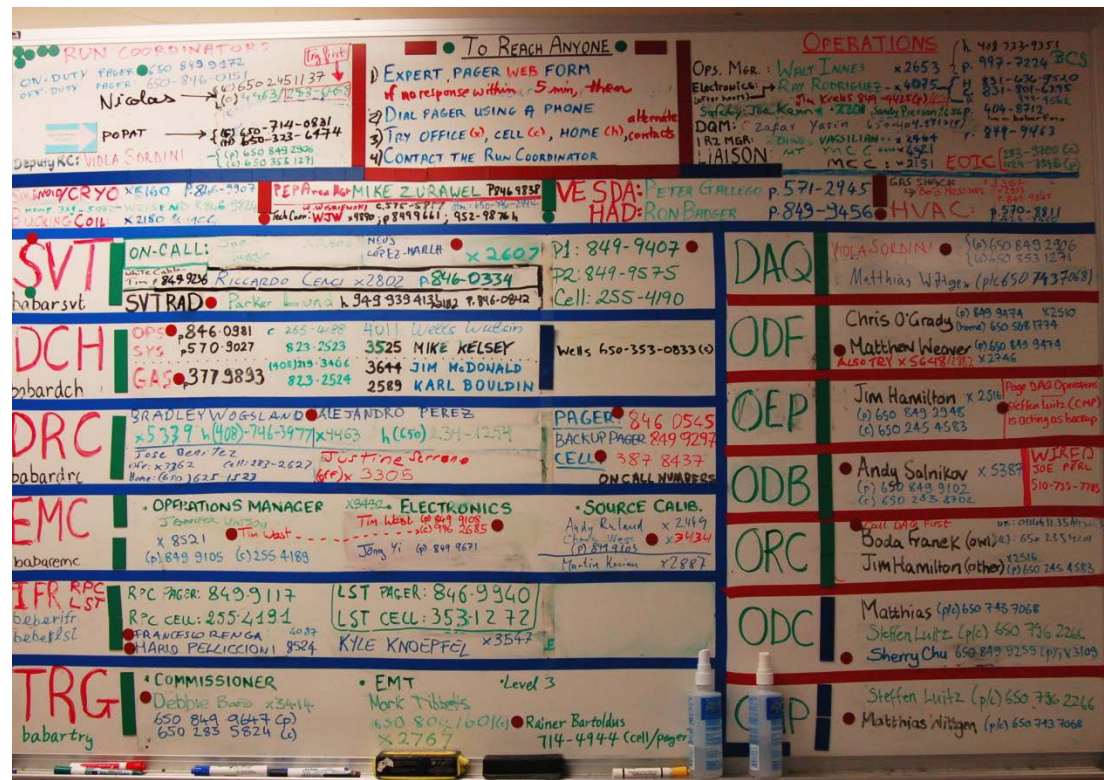 RUN COORDINATORS
Try first
ON-DUTY PAGER 650 849 9372
OFF-DUTY PAGER 650-846-0151
Nicolas (c) 650 2451137
(o) 4463/
POPAT (h) 650-714-0831
(c) 650-323-6474
Deputy RC: VIOLA SORDINI (p) 650 849 2906
(c) 650 353 1271
TO REACH ANYONE
1) EXPERT, PAGER WEB FORM
if no response within 5 min, then
2) DIAL PAGER USING A PHONE
3) TRY OFFICE (x), CELL (c), HOME (h), alternate contacts
4) CONTACT THE RUN COORDINATOR
OPERATIONS
OPS. MGR.: WALT INNES x2653 h 408 733-9351
p. 997-7224 BCS
Electronics: RAY RODRIGUEZ x4075 H 831-636-9520
(after hours) C 831-801-6295
Jim Krebs 849-9425(p)
Safety: Joe Kenny
DQM: Zafar Yasin
404-8712
IR2 MGR:
p: 849-9463
LIAISON:
MCC: x2151 EOIC
CRYO x5160 P.846-9907
BUCKING COIL: x2180
PEP Area Mgr MIKE ZURAWEL P846 9838
Tech Coor: WJW x4890, p 8499661, 952-9876 h
VESDA: PETER GALLEGO p. 571-2945
HAD: RON BADGER p. 849-9456
GAS SHACK
HVAC: p. 570-8811
SVT
babarsvt
ON-CALL: NEUS LOPEZ-MARCH x2607
White Cable Tim p 849 9236 RICCARDO CENCI x2802 p. 846-0334
SVTRAD Parker Lund h 949 939 4131 p. 846-0842
P1: 849-9407
P2: 849-9575
Cell: 255-4190
DCH
babardch
OPS p 846-0981 c 255-4188 4011 Wells Wulsin
SYS p 570-9027 823-2523 3525 MIKE KELSEY
GAS p 377 9893 (408)219-3466 3644 JIM McDONALD
823-2524 2589 KARL BOULDIN
Wells 650-353-0833(c)
DRC
babardrc
BRADLEY WOGSLAND ALEJANDRO PEREZ
x5339 h(408)-746-3977 x4463 h(650) 234-1254
Jose Benitez Justine Serrano
Off: x3362 Cell: 283-2627 (off) x 3305
Home: (650) 625 1523
PAGER 846 0545
BACKUP PAGER 849 9297
CELL 387 8437
ON CALL NUMBERS
EMC
babaremc
• OPERATIONS MANAGER
x 8521
(p) 849 9105 (c) 255 4189
Tim West
x3432 • ELECTRONICS
Tim West (p) 849 9108
(c) 996 2685
Jong Yi (p) 849 9671
• SOURCE CALIB.
Andy Ruland x 2449
Chris West x3434
(p) 849 9105
Martin Kocian x2887
IFR RPC LST
babarifr
babarlst
RPC PAGER: 849.9117
RPC CELL: 255-4191
FRANCESCO RENGA 4087
MARIO PELLICCIONI 8524
LST PAGER: 846-9940
LST CELL: 353-1272
KYLE KNOEPFEL x3547
TRG
babartrg
• COMMISSIONER
Debbie Bard x3414
650 849 9647 (p)
650 283 5824 (c)
• EMT
Mark Tibbetts
650 804 1601(c)
x2767
• Level 3
Rainer Bartoldus
714-4944 (cell/pager)
DAQ
VIOLA SORDINI (p) 650 849 2906
(c) 650 353 1271
Matthias Wittgen (p/c 650 7437068)
ODF
Chris O'Grady (p) 849 9474 x2510
(home) 650 568 1774
Matthew Weaver (p) 650 849 9474
ALSO TRY x5648 x2746
OEP
Jim Hamilton x2516
(p) 650 849 2948
(c) 650 245 4583
Page DAQ Operations
Steffen Luitz (CMP)
is acting as backup
ODB
Andy Salnikov x5387
(p) 650 849 9102
(c) 650 283 8702
WIRED
JOE PERL
510-735-7785
ORC
Call DAQ First
Boda Franek (owl)
Jim Hamilton (other) x2516
(p) 650 245 4583
ODC
Matthias (p/c) 650 743 7068
Steffen Luitz (p/c) 650 796 2266
Sherry Chu 650-849-9259 (p), x3109
Steffen Luitz (p/c) 650 796 2266
Matthias Wittgen (p/c) 650 743 7068